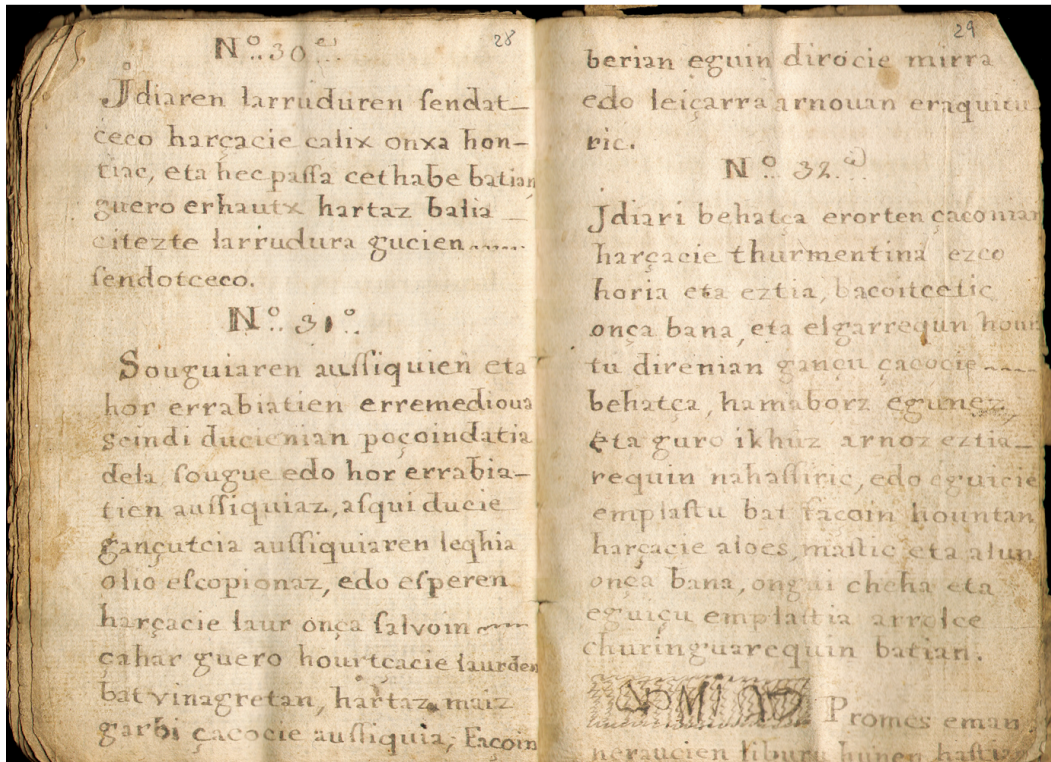 28
Nº..30.º..
Jdiaren larruduren ſendat-
ceco harçacie calix onxa hon-
tiac, eta hec paſſa cethabe batian
guero erhautx hartaz balia
citezte larrudura gucien
ſendotceco.
Nº. 31º.
Souguiaren auſſiquien eta
hor errabiatien erremedioua
scindi ducienian poçoindatia
dela ſougue edo hor errabia-
tien auſſiquiaz, aſqui ducie
gançutcia auſſiquiaren leqhia
olio eſcopionaz, edo eſperen
harçacie laur onça ſalvoin
çahar guero hourtcacie laurden
bat vinagretan, hartaz maiz
garbi çacocie auſſiquia, Facoin
29
berian eguin dirocie mirra
edo leiçarra arnouan eraquitu
ric.
Nº. 32.
Jdiari behatça erorten çaconian
harçacie thurmentina ezco
horia eta eztia, bacoitcetic
onça bana, eta elgarrequn houn
tu direnian gançu çacocie
behatça, hamaborz egunez
eta guro ikhuz arnoz eztia-
requin nahaſſiric, edo eguicie
emplaſtu bat facoin hountan
harçacie aloes, maſtic eta alun
onça bana, ongui cheha eta
eguiçu emplaſtia arrolce
churinguarequin batian.
Promes eman
neraucien liburu hunen haſtian